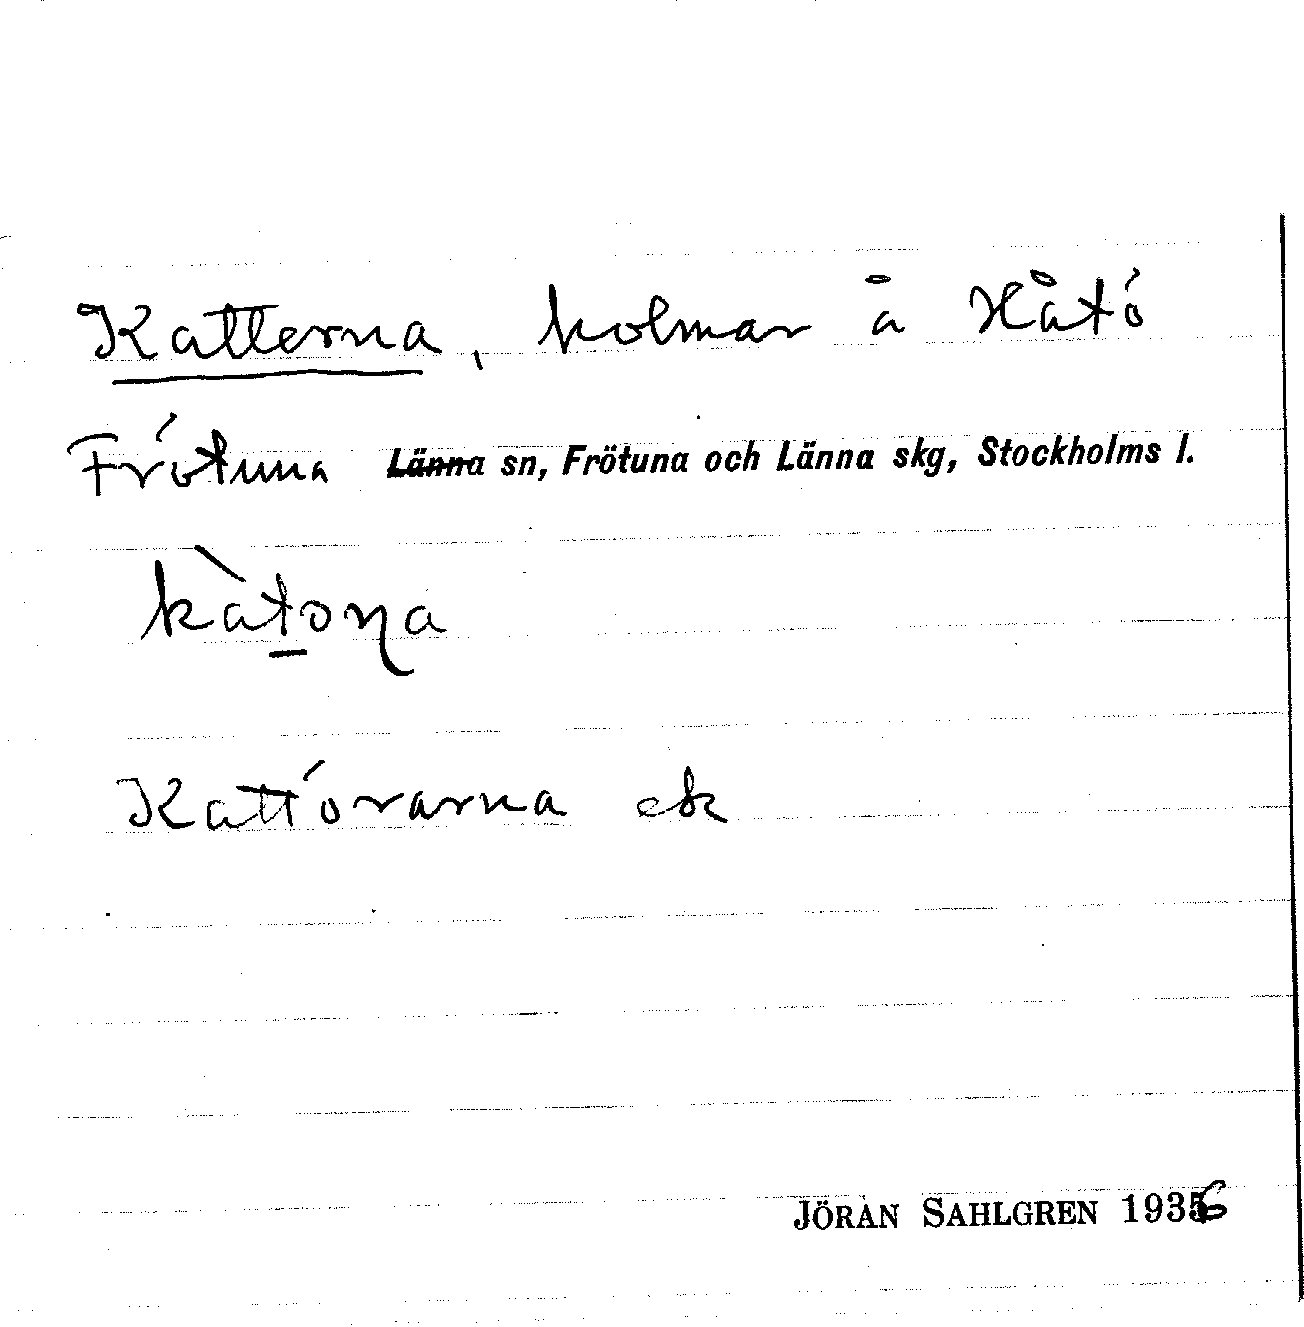 Katterna, holmar å Håtö
Frötuna Länna sn, Frötuna och Länna skg, Stockholms l.
kàtoɳa
Kattörarna ek
JÖRAN SAHLGREN 1936